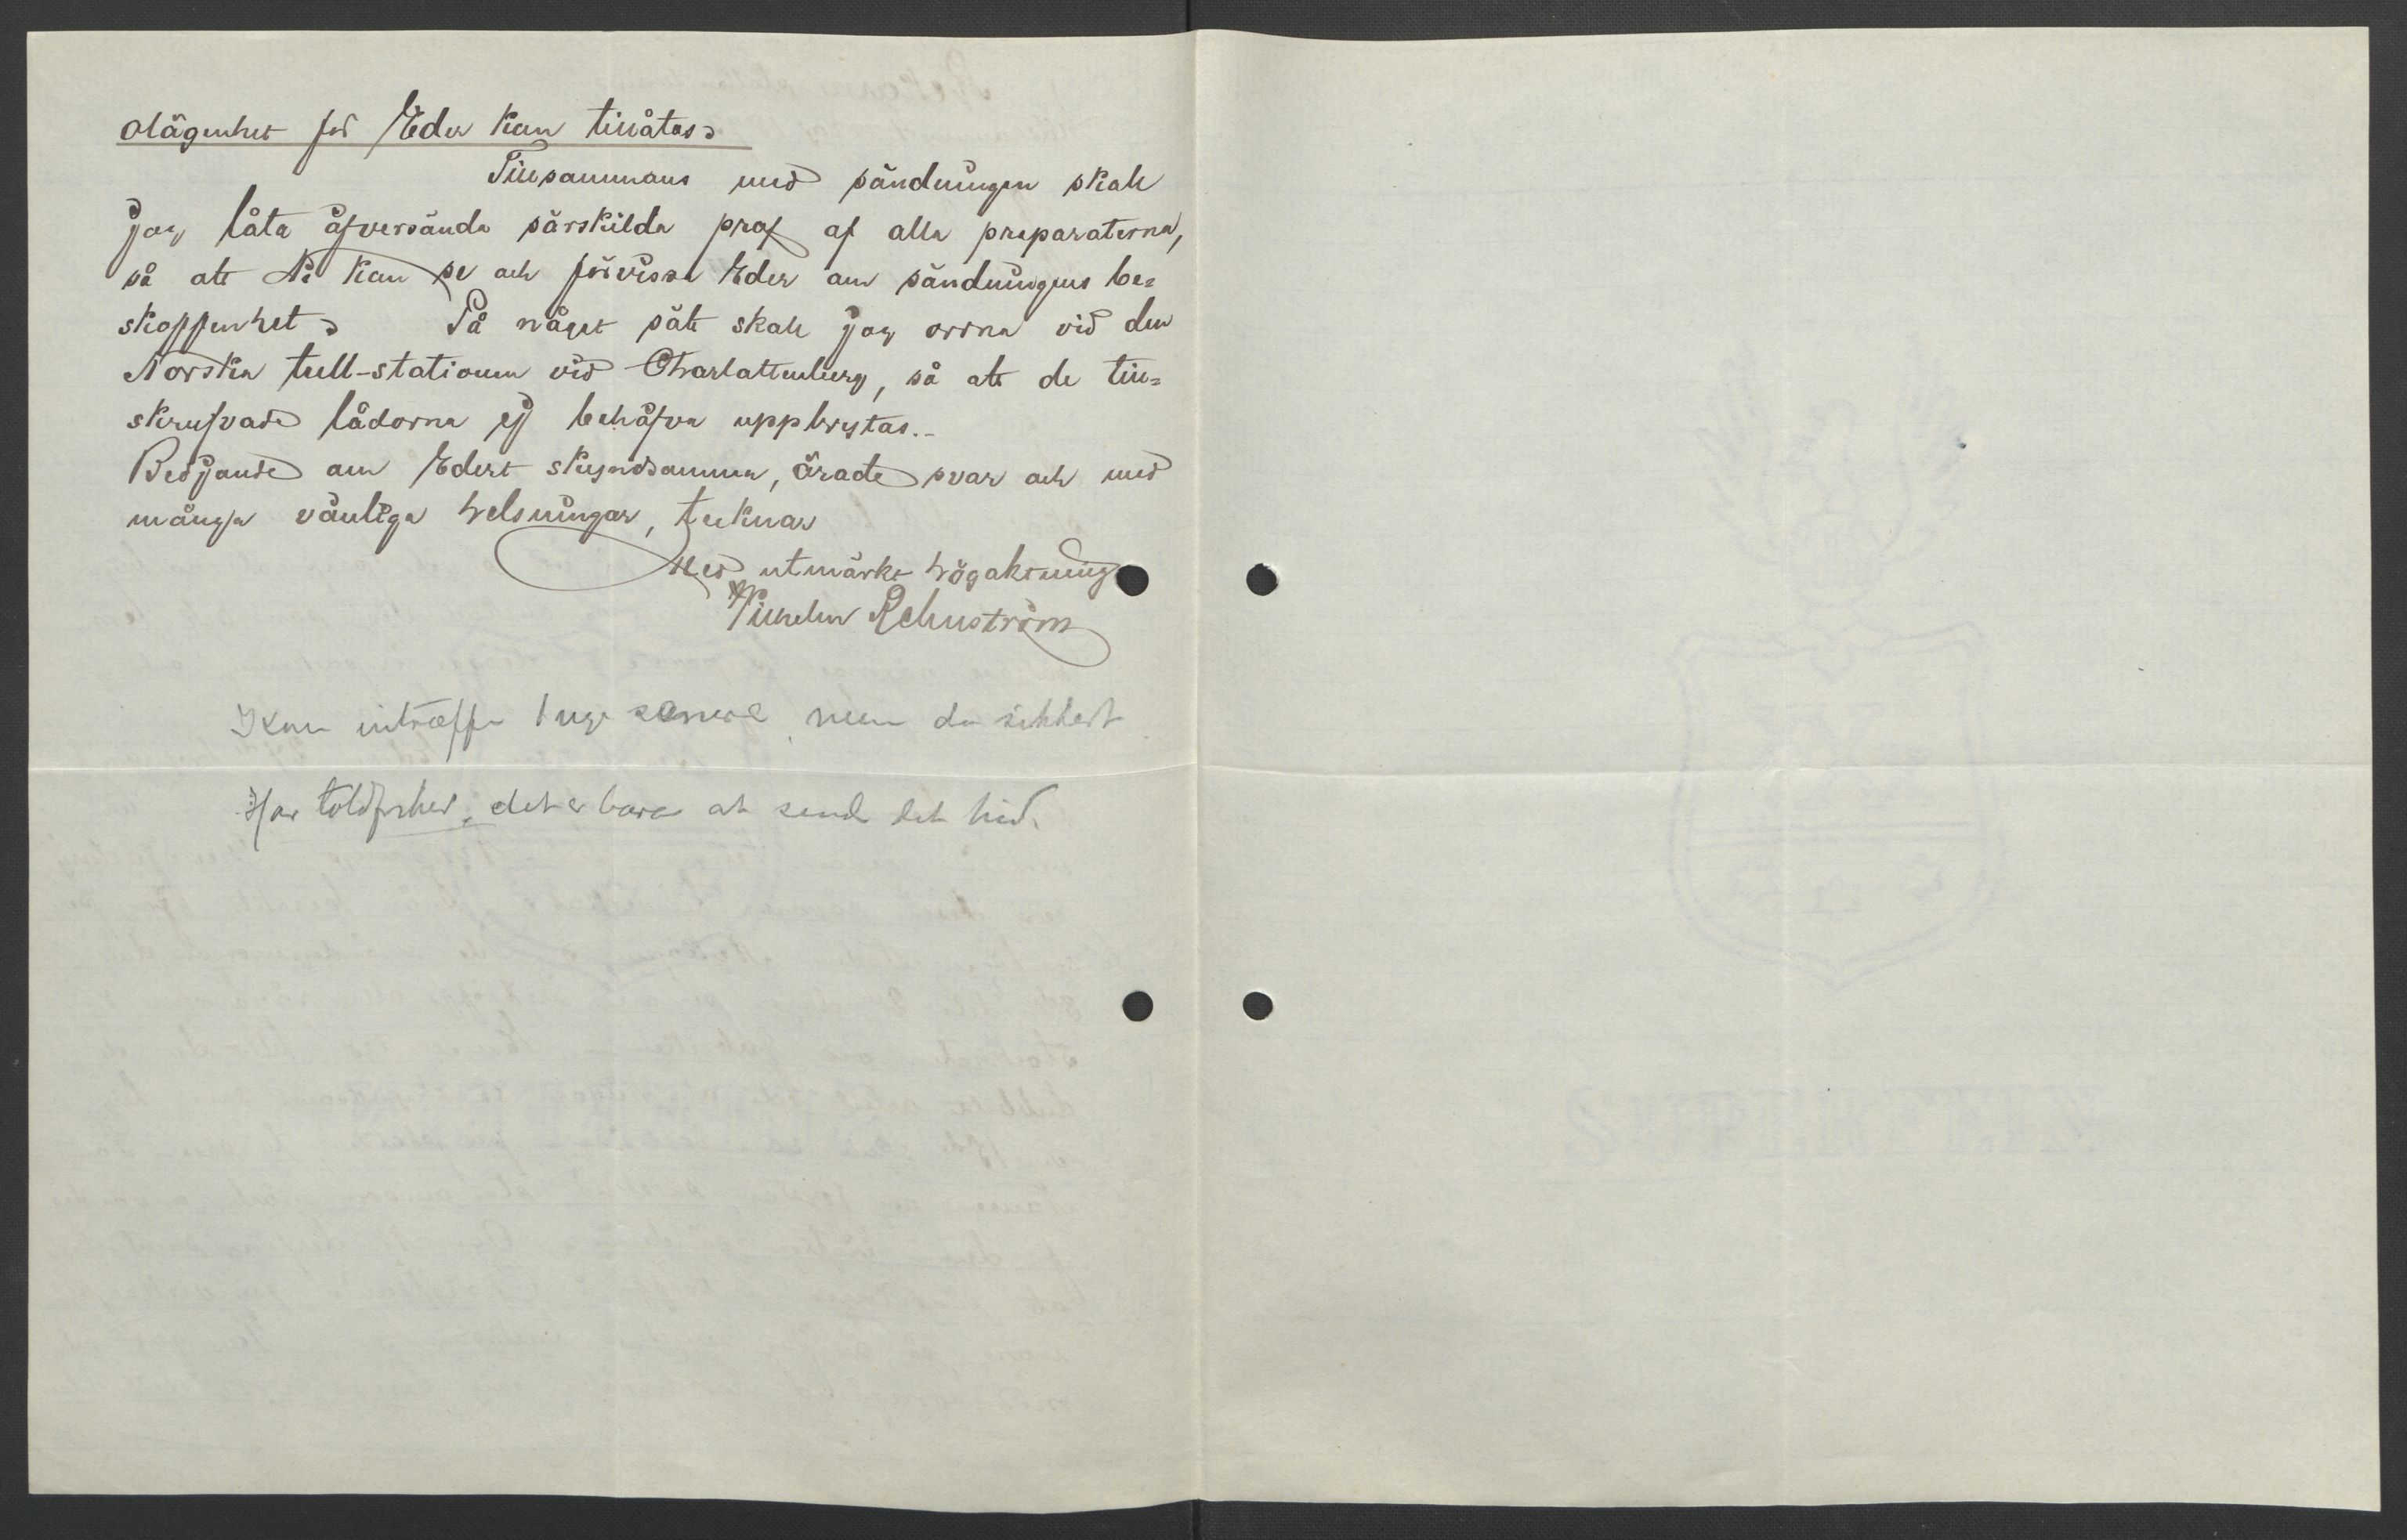 olägenhet för Eder kan tillåtas.
Tillsammans med sändningen skall
jag låta öfversända särskilda prof af alla preparaterna,
så att Ni kan se och förvissa Eder om sändningens be=
skaffenhet. På något sätt skall jag ordna vid den
Norska tull-stationen vid Charlottenberg, så att de till=
skrufvade lådorna ej behöfva uppbrytas.-
Bedjande om Edert skyndsamma, ärade svar och med
många vänliga helsningar, tecknar
Med utmärkt högaktning
Vilhelm
Kan inträffe 1 uge senere, men da sikkert
Har toldfrihed, det er bare at sende det hid.